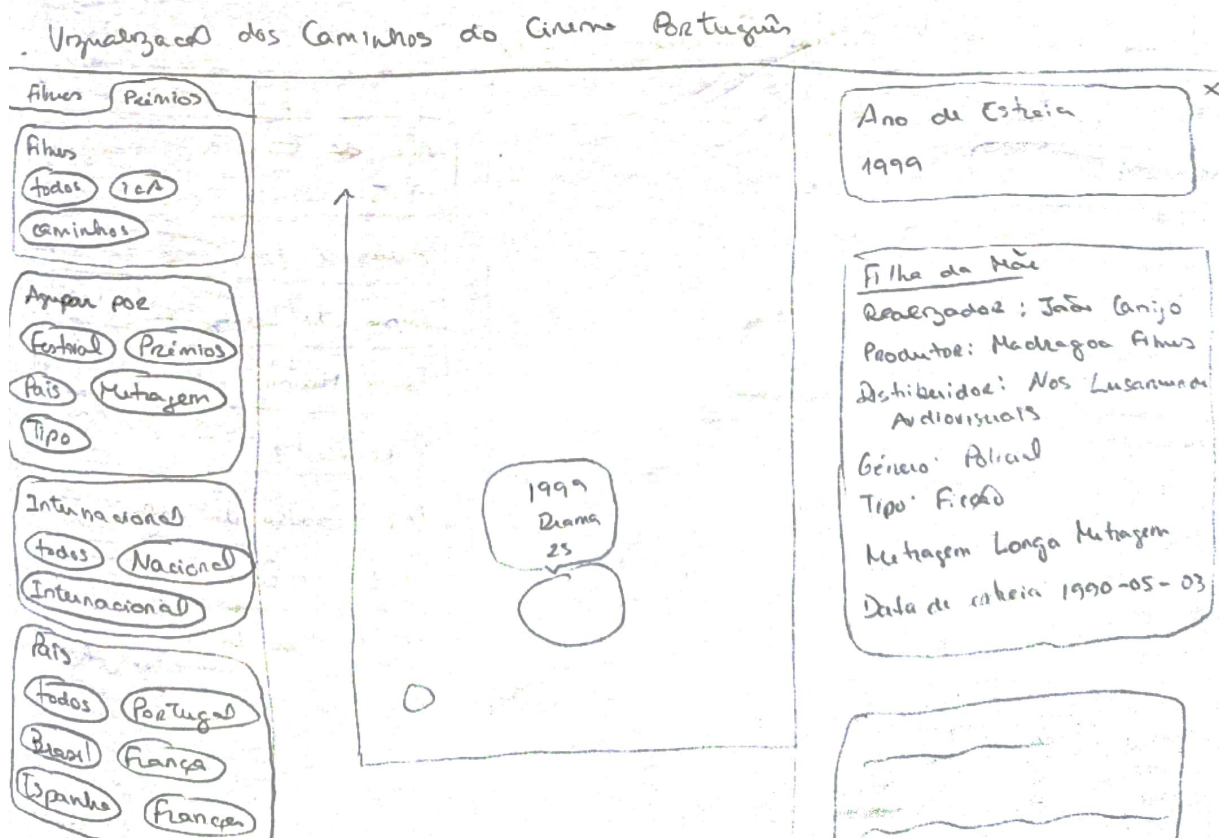 Vizualização dos Caminhos do Cinema Português
Filmes Prémios
Filmes
todos ICA
caminhos
Agrupar por
Festival Prémios
País Metragem
Tipo
Internacional
todos Nacional
Internacional
País
todos Portugal
Brasil França
Espanha
1999
Drama
25
x
Ano de Estreia
1999
Filha da Mãe
Realizador: João Canijo
Produtor: Madragoa Filmes
Distribuidor: Nos Lusomundo
Audiovisuais
Género: Policial
Tipo: Ficção
Metragem Longa Metragem
Data de estreia 1990-05-03